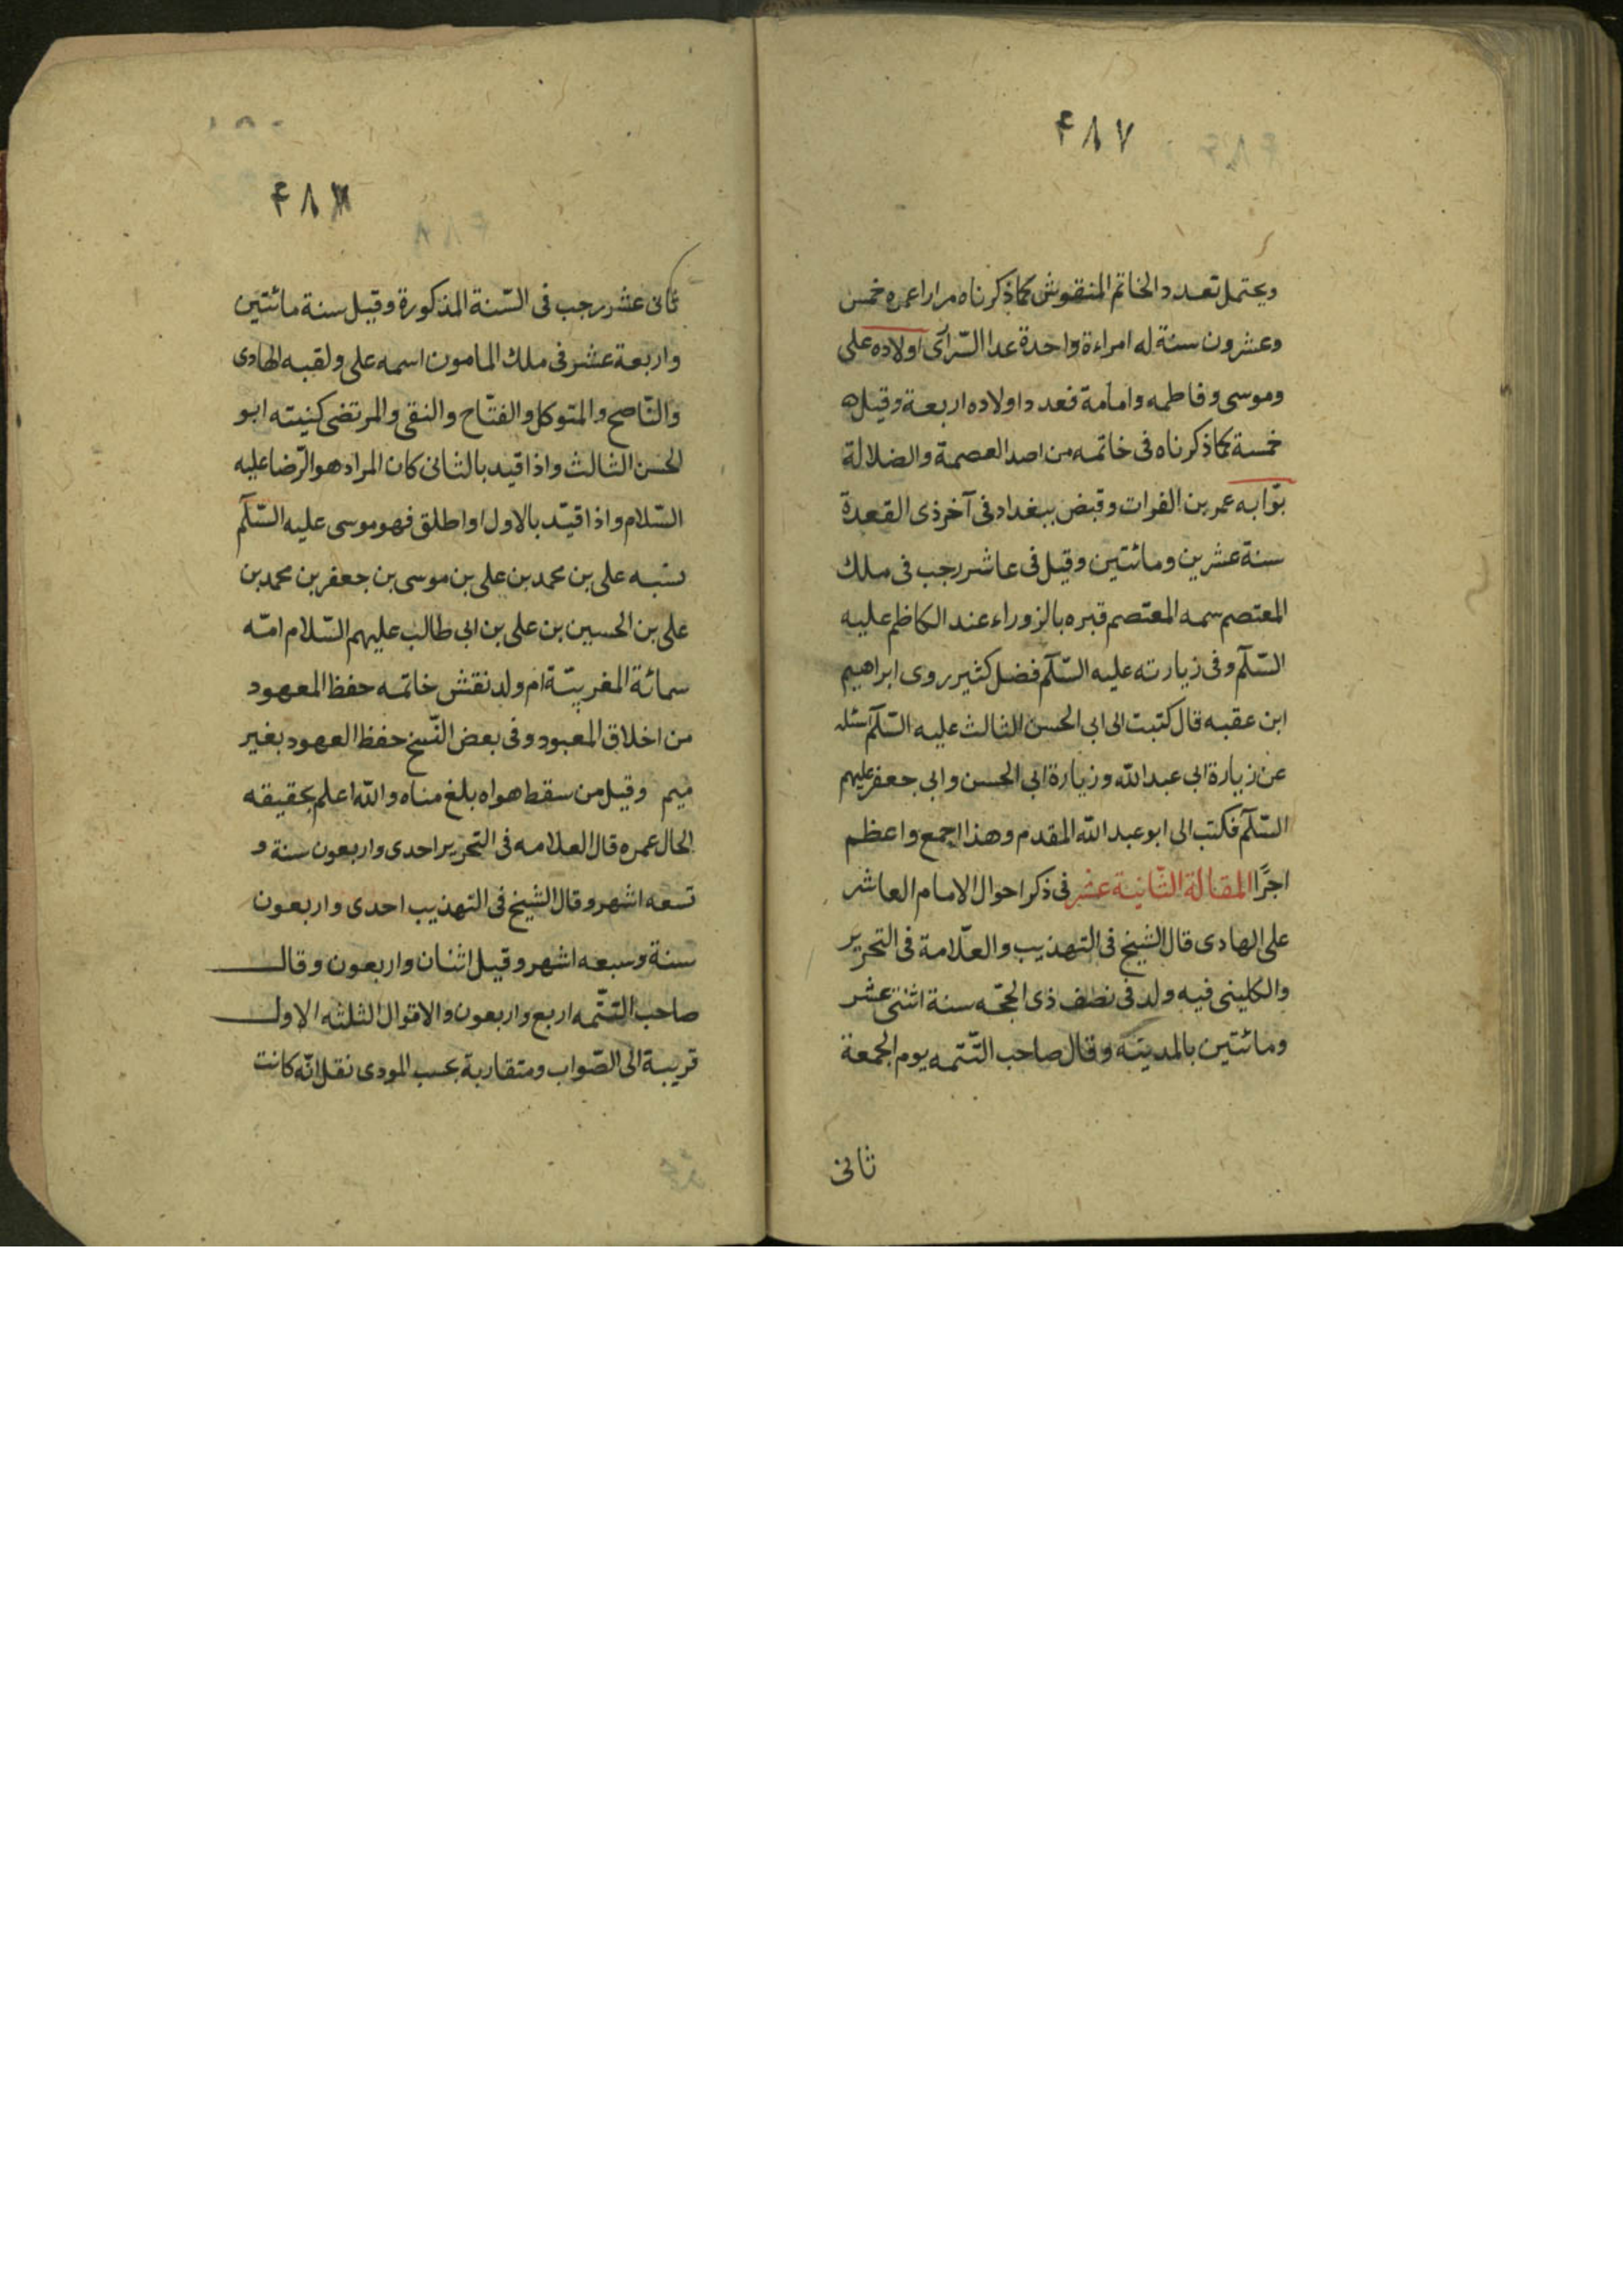 ۴۸۷
ويحتمل تعدد الخاتم المنقوش كما ذكرناه مرارا عمره خمس
وعشرون سنة له امراءة واحدة عدا السّراى اولاده على
وموسى وفاطمه وامامة فعدد اولاده اربعة وقيل
خمسة كما ذكرناه فى خاتمه من اصد العصمة والضلالة
بوّابه عمر بن الفرات وقبض ببغداد فى آخر ذى القعدة
سنة عشرين ومائتين وقيل فى عاشر رجب فى ملك
المعتصم سمه المعتصم قبره بالزوراء عند الكاظم عليه
السّلم وفى زيارته عليه السّلم فضل كثير روى ابراهيم
ابن عقبه قال كتبت الى ابى الحسن الثالث عليه السّلم اسئله
عن زيارة ابى عبد الله وزيارة ابى الحسن وابى جعفر عليهم
السّلم فكتب الى ابو عبد الله المقدم وهذا اجمع واعظم
اجرًا المقالة الثّانية عشر فى ذكر احوال الامام العاشر
على الهادى قال الشيخ فى التهذيب والعلّامة فى التحرير
والكلينى فيه ولد فى نصف ذى الحجّه سنة اثنتى عشر
ومائتين بالمدينه وقال صاحب التّتمه يوم الجمعة
ثانى
۴۸
ثانى عشر رجب فى السّنة المذكورة وقيل سنة مائتين
واربعة عشر فى ملك المامون اسمه على ولقبه الهادى
والنّاصح والمتوكل والفتّاح والنقى والمرتضى كنيته ابو
الحسن الثالث واذا قيد بالثانى كان المراد هو الرّضا عليه
السّلام واذا قيّد بالاول او اطلق فهو موسى عليه السّلم
نسبه على بن محمد بن على بن موسى بن جعفر بن محمد بن
على بن الحسين بن على بن ابى طالب عليهم السّلام امّه
سمانة المغربيّة ام ولد نقش خاتمه حفظ المعهود
من اخلاق المعبود وفى بعض النّسخ حفظ العهود بغير
ميم وقيل من سقط هواه بلغ مناه والله اعلم بحقيقه
الحال عمره قال العلامه فى التحرير احدى واربعون سنة و
تسعه اشهر وقال الشيخ فى التهذيب احدى واربعون
سنة وسبعه اشهر وقيل اثنان واربعون وقال
صاحب التّتمه اربع واربعون والاقوال الثلثه الاول
قريبة الى الصّواب ومتقاربة بحسب المودى نقل انّه كانت